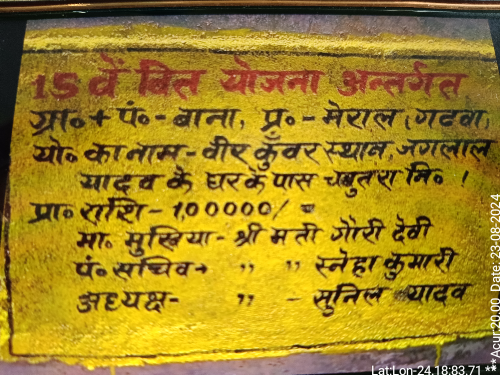 15 वें वित योजना अन्तर्गत
ग्रा० + पं० - बाना, प्र० - मेराल, गढवा,
यो० का नाम - वीर कुँवर स्थान, जंगलाल
यादव के घर के पास चबुतरा नि० ।
प्रा० राशि - 1,00000/=
मा. मुखिया - श्री मती गौरी देवी
पं. सचिव → ,, ,, स्नेहा कुमारी
अध्यक्ष - ,, - सुनिल यादव
Lat Lon-24.18:83.71 *** Acur:20.00, Date: 23-08-2024